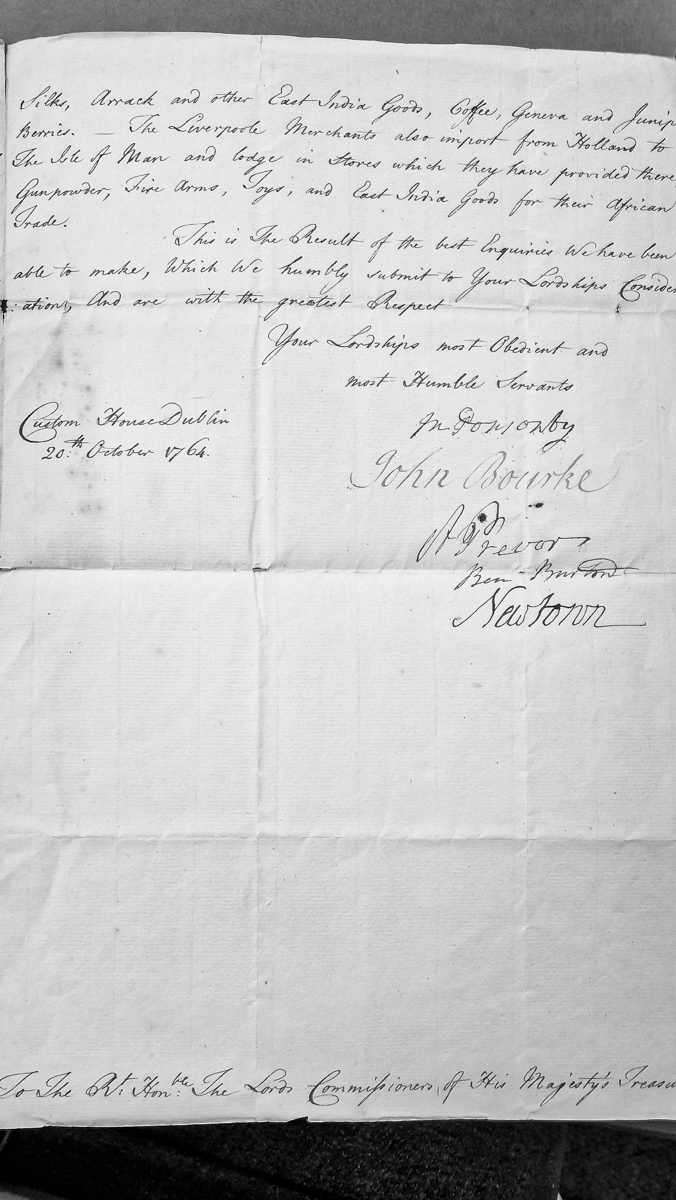 Silks, Arrack and other East India Goods, Coffee, Geneva and Junip
Berries. — The Liverpoole Merchants also import from Holland to
The Isle of Man and lodge in Stores which they have provided there,
Gunpowder, Fire Arms, Toys, and East India Goods for their African
Trade.
This is The Result of the best Enquiries We have been
able to make, Which We humbly submit to Your Lordships Consider
:ation, And are with the greatest Respect
Your Lordships most Obedient and
most Humble Servants
Custom House Dublin
20:th October 1764.
Jn Ponsonby
John Bourke
A Trevor
Ben - Burton
Newtown
To The Rt. Honble: The Lords Commissioners of His Majesty's Treasu